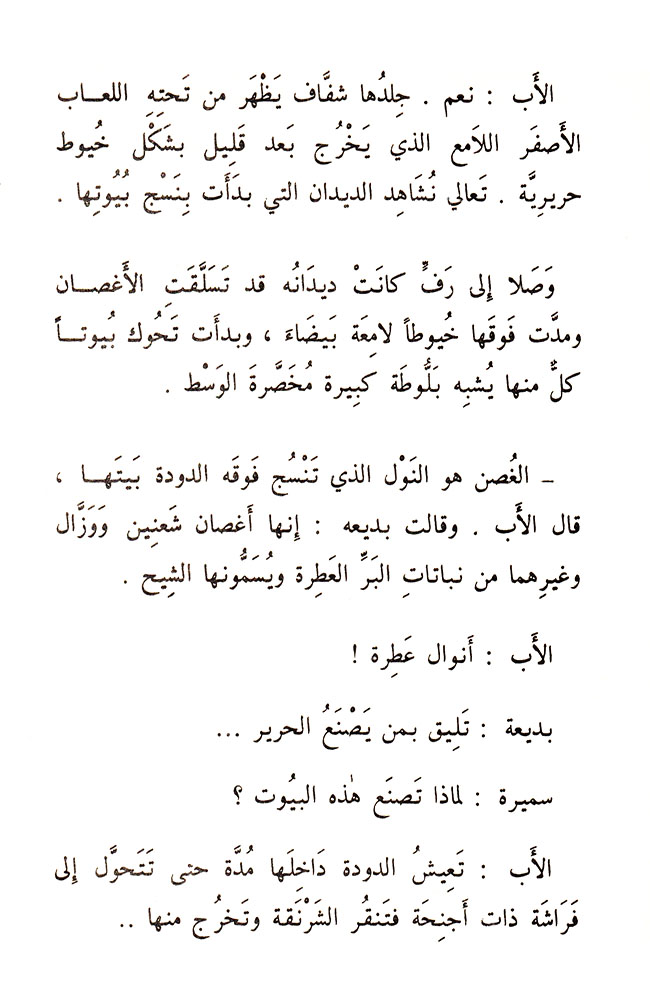 الأَب : نعم . جِلدُها شفَّاف يَظْهَر من تَحتِهِ اللعـاب
الأَصفَر اللاَمع الذي يَخْرُج بَعد قَلِيل بشَكْل خُيوط
حريرِيَّة . تَعالي نُشَاهِد الديدان التي بدَأَت بِنَسْج بُيُوتِها .
وَصَلا إِلى رَفٍّ كانَتْ ديدَانُه قد تَسَلَّقَتِ الأَغصـان
ومدَّت فَوقَها خُيوطاً لامِعَة بَيضَاءَ ، وبدأَت تَحُوك بُيوتـاً
كلٌّ منها يُشبِه بَلُّوطَة كبِيرة مُخَصَّرةَ الوَسْط .
ـ الغُصن هو النَوْل الذي تَنْسُج فَوقَه الدودة بَيتَهـا ،
قال الأَب . وقالت بديعه : إِنها أَغصان شَعنِين وَوَزَّال
وغيرِهما من نباتاتِ البَرِّ العَطِرة ويُسَمُّونها الشِيح .
الأَب : أَنوال عَطِرة !
بديعة : تَلِيق بمن يَصْنَعُ الحرير ...
سميرة : لماذا تَصنَع هٰذه البيُوت ؟
الأَب : تَعِيشُ الدودة دَاخِلَها مُدَّة حتى تَتَحوَّل إِلى
فَرَاشَة ذات أَجنِحَة فتَنقُر الشَرْنَقة وتَخرُج منها ..